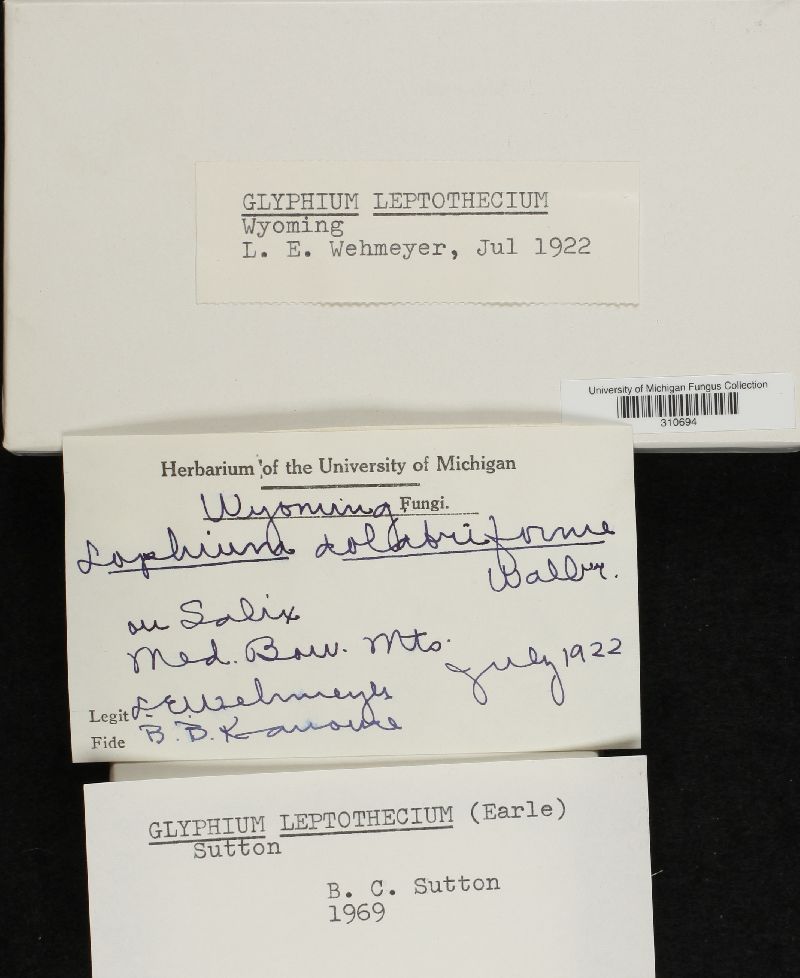 GLYPHIUM LEPTOTHECIUM
Wyoming
L. E. Wehmeyer, Jul 1922
University of Michigan Fungus Collection
310694
Herbarium of the University of Michigan
Wyoming Fungi.
Lophium dolabriforme
Wallr.
on Salix
Med. Bow. Mts.
July 1922
Legit L E Wehmeyer
Fide B. B. Kanouse
GLYPHIUM LEPTOTHECIUM (Earle)
Sutton
B. C. Sutton
1969